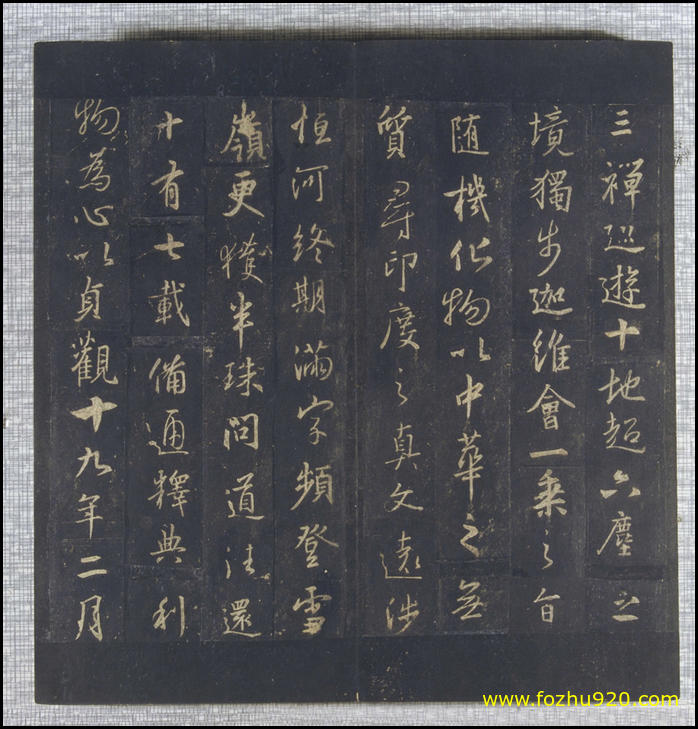 三禪巡遊十地超六塵之
境獨步迦維會一乘之旨
随機化物以中華之無
質尋印度之真文遠涉
恒河終期滿字頻登雪
嶺更獲半珠問道法還
十有七載備通釋典利
物為心以貞觀十九年二月
www.fozhu920.com